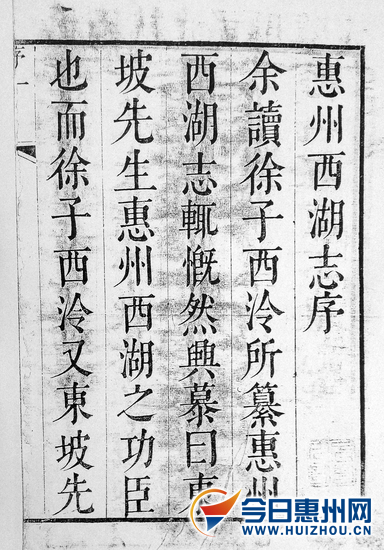 惠州西湖志序
余讀徐子西泠所纂惠州
西湖志輒慨然興慕曰東
坡先生惠州西湖之功臣
也而徐子西泠又東坡先
序一
今日惠州网
WWW.HUIZHOU.CN